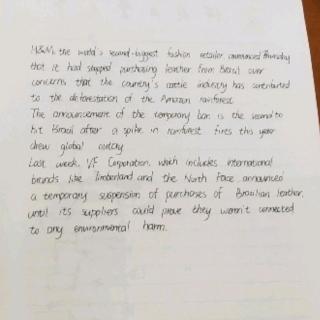 H&M, the world's second-biggest fashion retailer, announced Thursday
that it had stopped purchasing leather from Brazil over
concerns that the country's cattle industry has contributed
to the deforestation of the Amazon rainforest.
The announcement of the temporary ban is the second to
hit Brazil after a spike in rainforest fires this year
drew global outcry.
Last week, VF Corporation, which includes international
brands like Timberland and the North Face announced
a temporary suspension of purchases of Brazilian leather,
until its suppliers could prove they weren't connected
to any environmental harm.